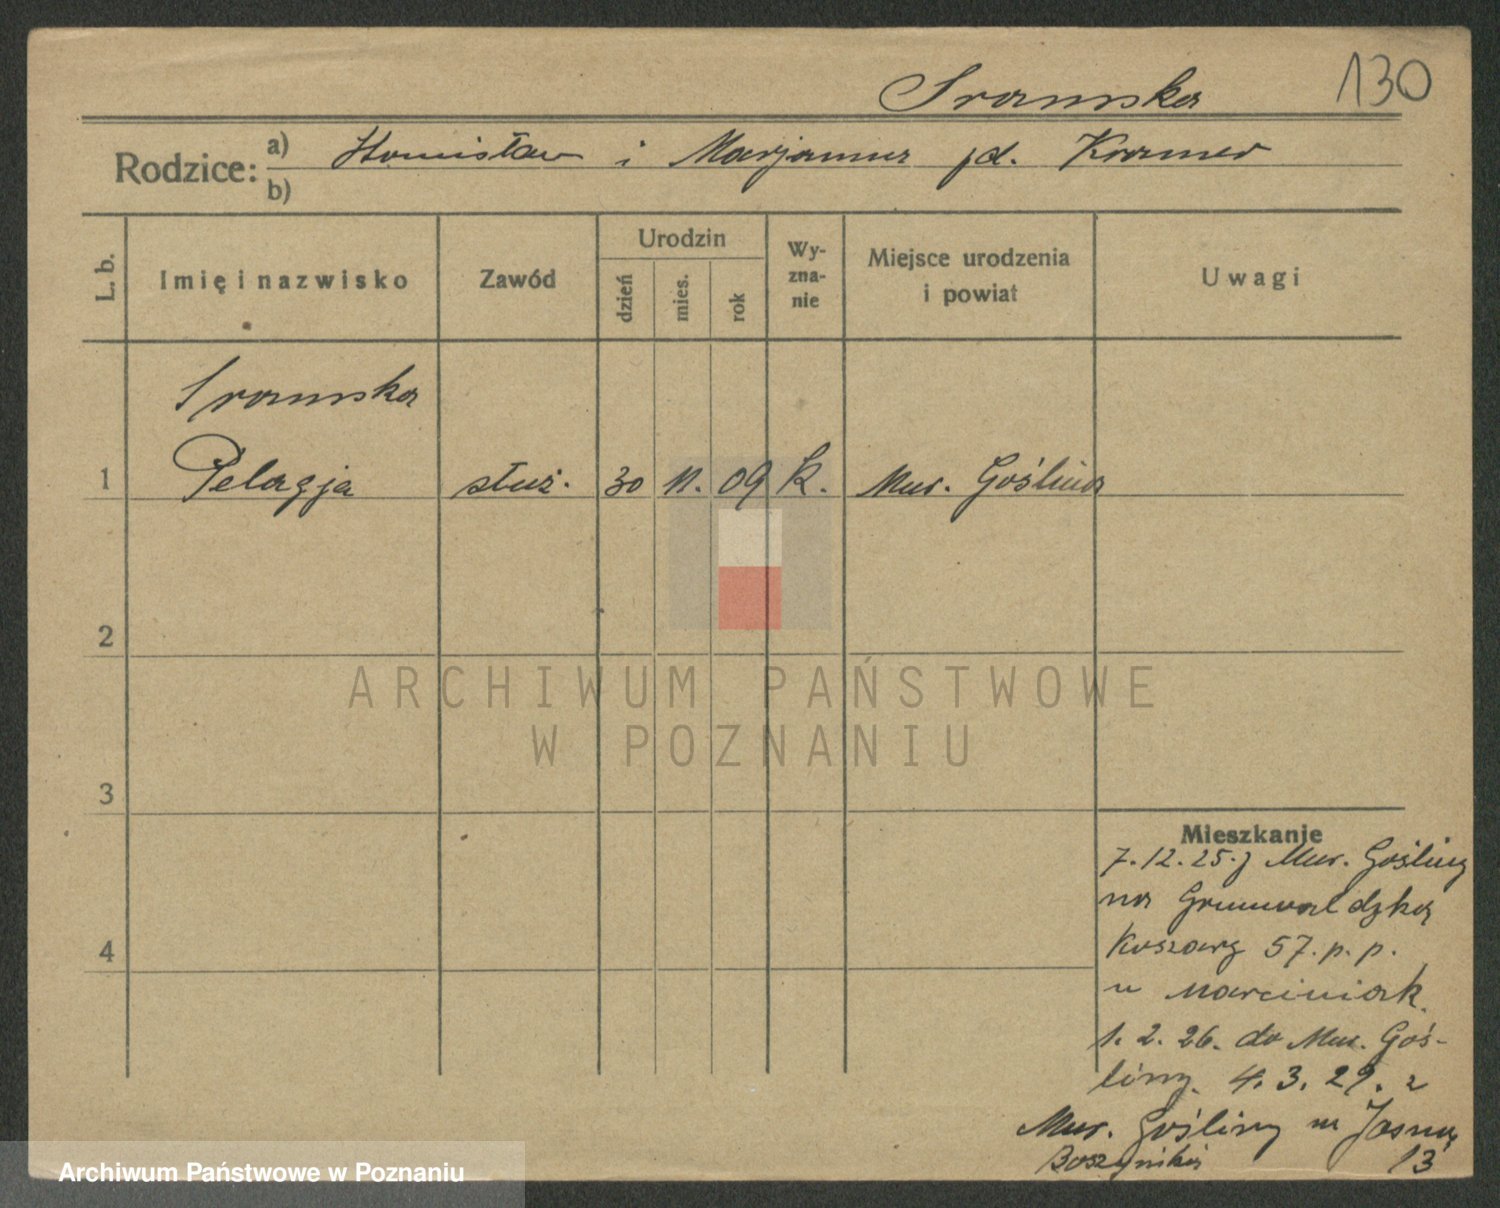 Sramska
130
Rodzice:
a) Stanisław i Marjanna yd. Kramer
b)
L. b.
Imię i nazwisko
Zawód
Urodzin
dzień
mies.
rok
Wy-
zna-
nie
Miejsce urodzenia
i powiat
Uwagi
Sramska
1 Pelagja służ. 30 11. 09 k. Mur. Goślina
2
3
4
ARCHIWUM PAŃSTWOWE
W POZNANIU
Mieszkanie
7.12.25. z Mur. Gośliny
na Grunwaldzką
Koszary 57. p. p.
u Marciniak.
1. 2. 26. do Mur. Goś-
liny. 4. 3. 29. z
Mur. Gośliny na Jasną
13
Archiwum Państwowe w Poznaniu